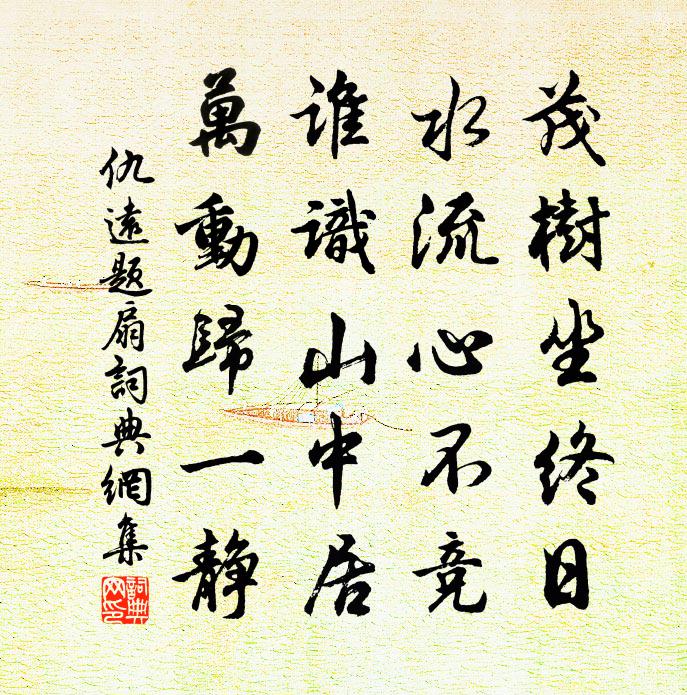 茂樹坐終日
水流心不競
誰識山中居
萬動歸一静
仇遠題扇詞典網集
詞典網印